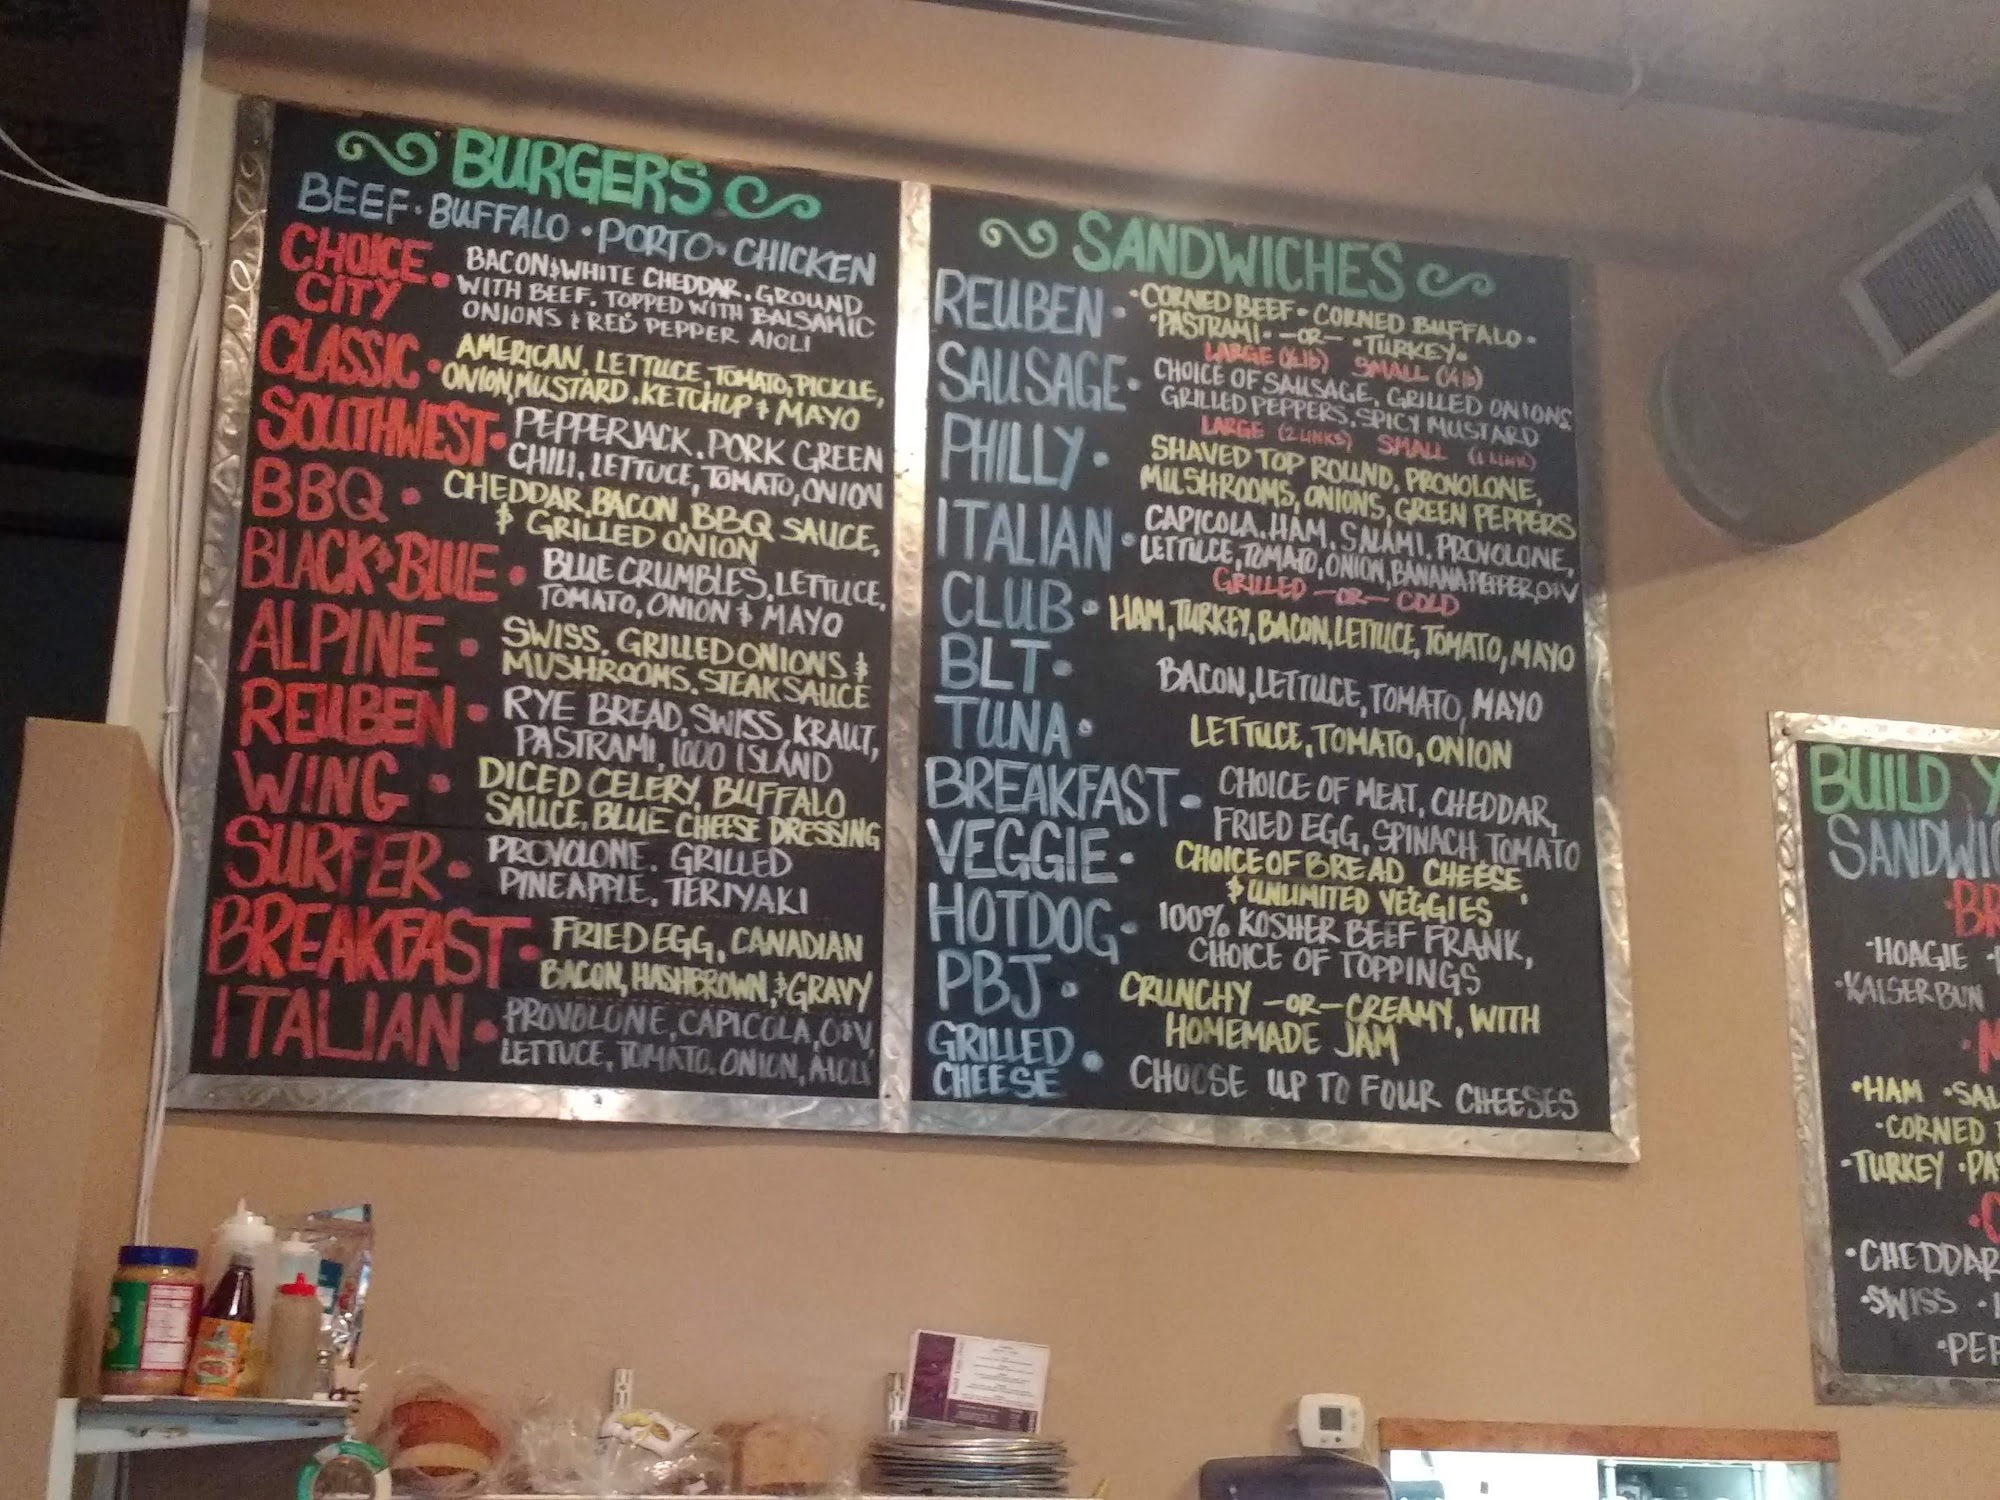 BURGERS
BEEF · BUFFALO · PORTO · CHICKEN
CHOICE CITY · BACON & WHITE CHEDDAR. GROUND
WITH BEEF. TOPPED WITH BALSAMIC
ONIONS & RED PEPPER AIOLI
CLASSIC · AMERICAN, LETTUCE, TOMATO, PICKLE,
ONION, MUSTARD. KETCHUP & MAYO
SOUTHWEST · PEPPERJACK. PORK GREEN
CHILI. LETTUCE, TOMATO, ONION
BBQ · CHEDDAR, BACON, BBQ SAUCE,
& GRILLED ONION
BLACK & BLUE · BLUE CRUMBLES, LETTUCE,
TOMATO, ONION & MAYO
ALPINE · SWISS. GRILLED ONIONS &
MUSHROOMS. STEAK SAUCE
REUBEN · RYE BREAD, SWISS, KRAUT,
PASTRAMI, 1000 ISLAND
WING · DICED CELERY, BUFFALO
SAUCE, BLUE CHEESE DRESSING
SURFER · PROVOLONE. GRILLED
PINEAPPLE, TERIYAKI
BREAKFAST · FRIED EGG, CANADIAN
BACON, HASHBROWN, & GRAVY
ITALIAN · PROVOLONE, CAPICOLA, O&V,
LETTUCE, TOMATO, ONION, AIOLI
SANDWICHES
REUBEN · CORNED BEEF · CORNED BUFFALO ·
· PASTRAMI · -OR- · TURKEY ·
LARGE (½ lb) SMALL (¼ lb)
SAUSAGE · CHOICE OF SAUSAGE, GRILLED ONIONS
GRILLED PEPPERS, SPICY MUSTARD
LARGE (2 LINKS) SMALL (1 LINK)
PHILLY · SHAVED TOP ROUND, PROVOLONE,
MUSHROOMS, ONIONS, GREEN PEPPERS
ITALIAN · CAPICOLA, HAM, SALAMI, PROVOLONE,
LETTUCE, TOMATO, ONION, BANANA PEPPER, O&V
GRILLED -OR- COLD
CLUB · HAM, TURKEY, BACON, LETTUCE, TOMATO, MAYO
BLT · BACON, LETTUCE, TOMATO, MAYO
TUNA · LETTUCE, TOMATO, ONION
BREAKFAST · CHOICE OF MEAT, CHEDDAR,
FRIED EGG, SPINACH TOMATO
VEGGIE · CHOICE OF BREAD CHEESE
& UNLIMITED VEGGIES
HOTDOG · 100% KOSHER BEEF FRANK,
CHOICE OF TOPPINGS
PBJ · CRUNCHY -OR- CREAMY, WITH
HOMEMADE JAM
GRILLED CHEESE · CHOOSE UP TO FOUR CHEESES
BUILD Y
SANDWIC
· BR
· HOAGIE ·
· KAISER BUN
· M
· HAM · SAL
· CORNED
· TURKEY · PA
· C
· CHEDDAR
· SWISS ·
· PEP